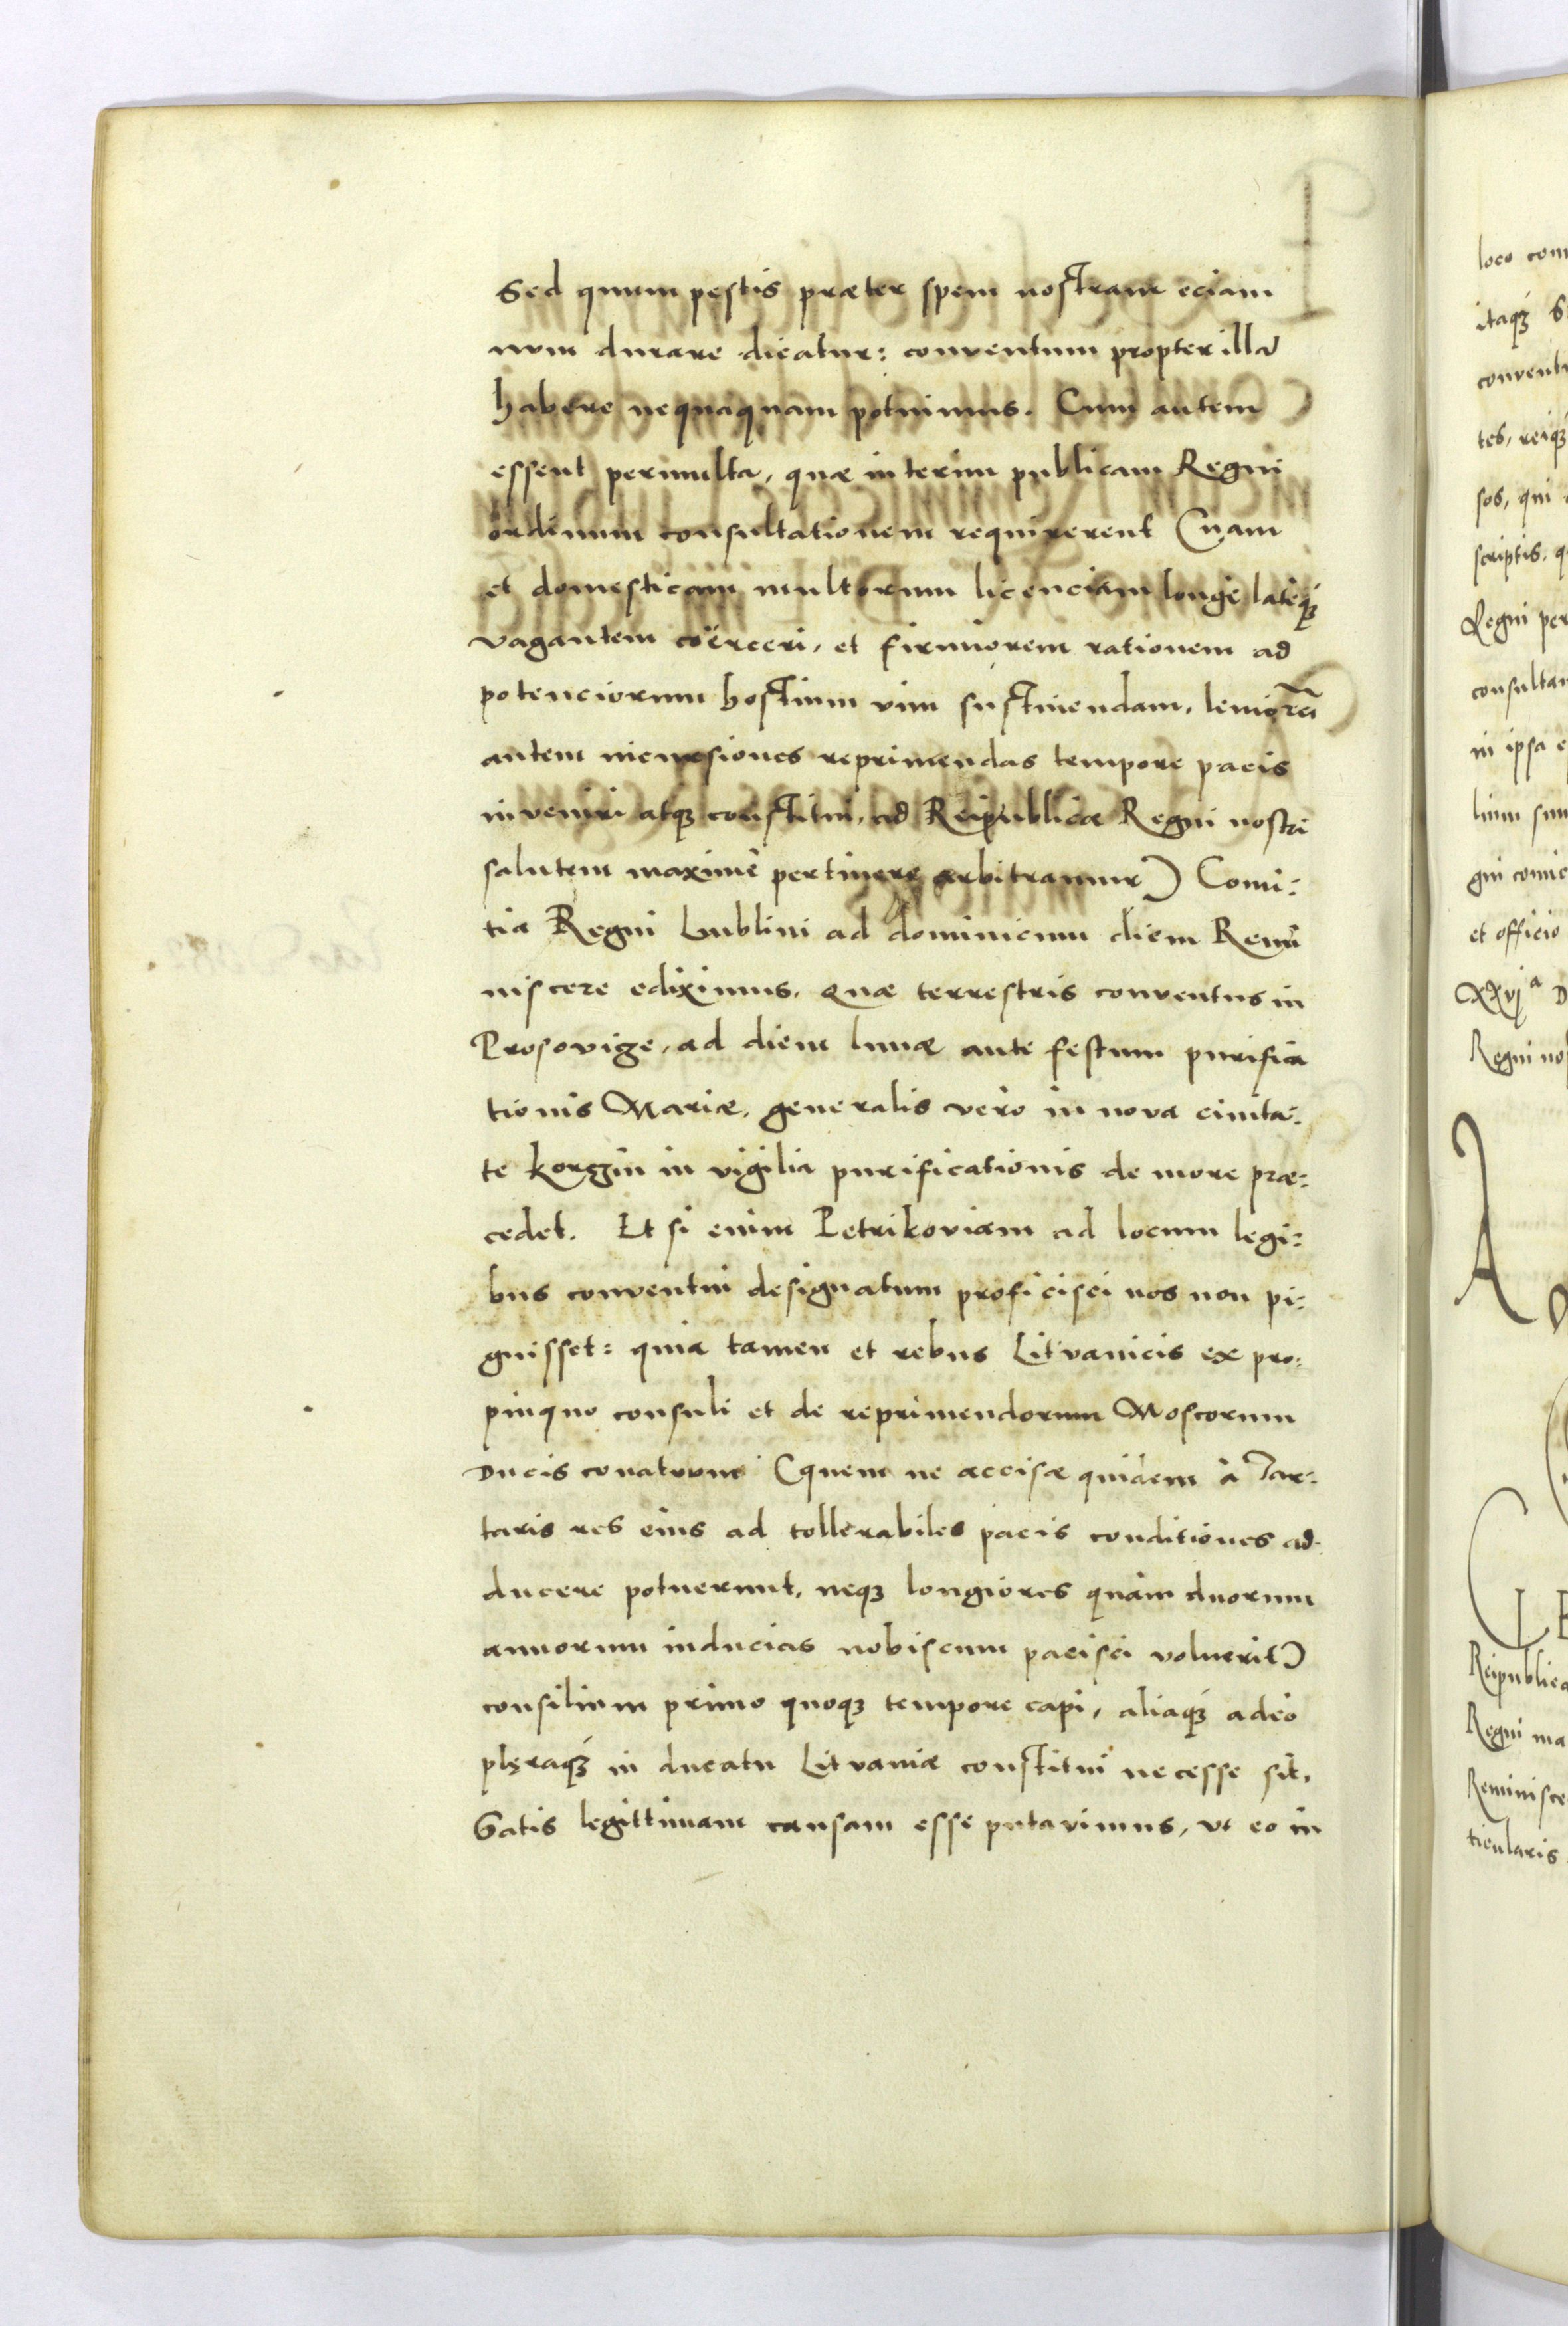 Sed quum pestis præter spem nostram eciam
num durare dicatur: conventum propter illā
habere nequaquam potuimus. Cum autem
essent permulta, quæ interim publicam Regni
ordinum consultationem requirerent (nam
et domesticam multorum licenciam longè latéq́ꝫ
vagantem coërceri, et firmiorem rationem ad
potenciorum hostium vim sustinendam, leniorū
autem incursiones reprimendas tempore pacis
inveniri atqꝫ constitui, ad Reipublicæ Regni nostri
salutem maximè pertinere arbitramur) Comi:
tia Regni Lublini ad dominicum diem Remi
niscere ediximus. Quæ terrestris conventus in
Prosovige, ad diem lunæ ante festum purifica
tionis Mariæ, generalis verò in nova civita:
te Korczin in vigilia purificationis de more præ:
cedet. Et si enim Petrikoviam ad locum legi:
bus conventui designatum proficisci nos non pi:
guisset: quia tamen et rebus Litvanicis ex pro:
pinquo consuli et de reprimendorum Moscorum
Ducis conatuum (quem ne accisæ quidem à Tar:
taris res eius ad tollerabiles pacis conditiones ad:
ducere potuerunt, neqꝫ longiores quàm duorum
annorum inducias nobiscum pacisci voluerit)
consilium primo quoqꝫ tempore capi, aliaq́ꝫ adeò
plęraq́ꝫ in ducatu Litvaniæ constitui necesse sit,
Satis legittimam causam esse putavimus, vt eo in
loco con
itaq́ꝫ
convent
tes, reiqꝫ
sos, qui
scriptis,
Regni per
consultan
in ipsa
lium sun
gni comic
et officio
XXvjᵃ
Regni nos
A
Reipublica
Regni ma
Reminisce
ticularis